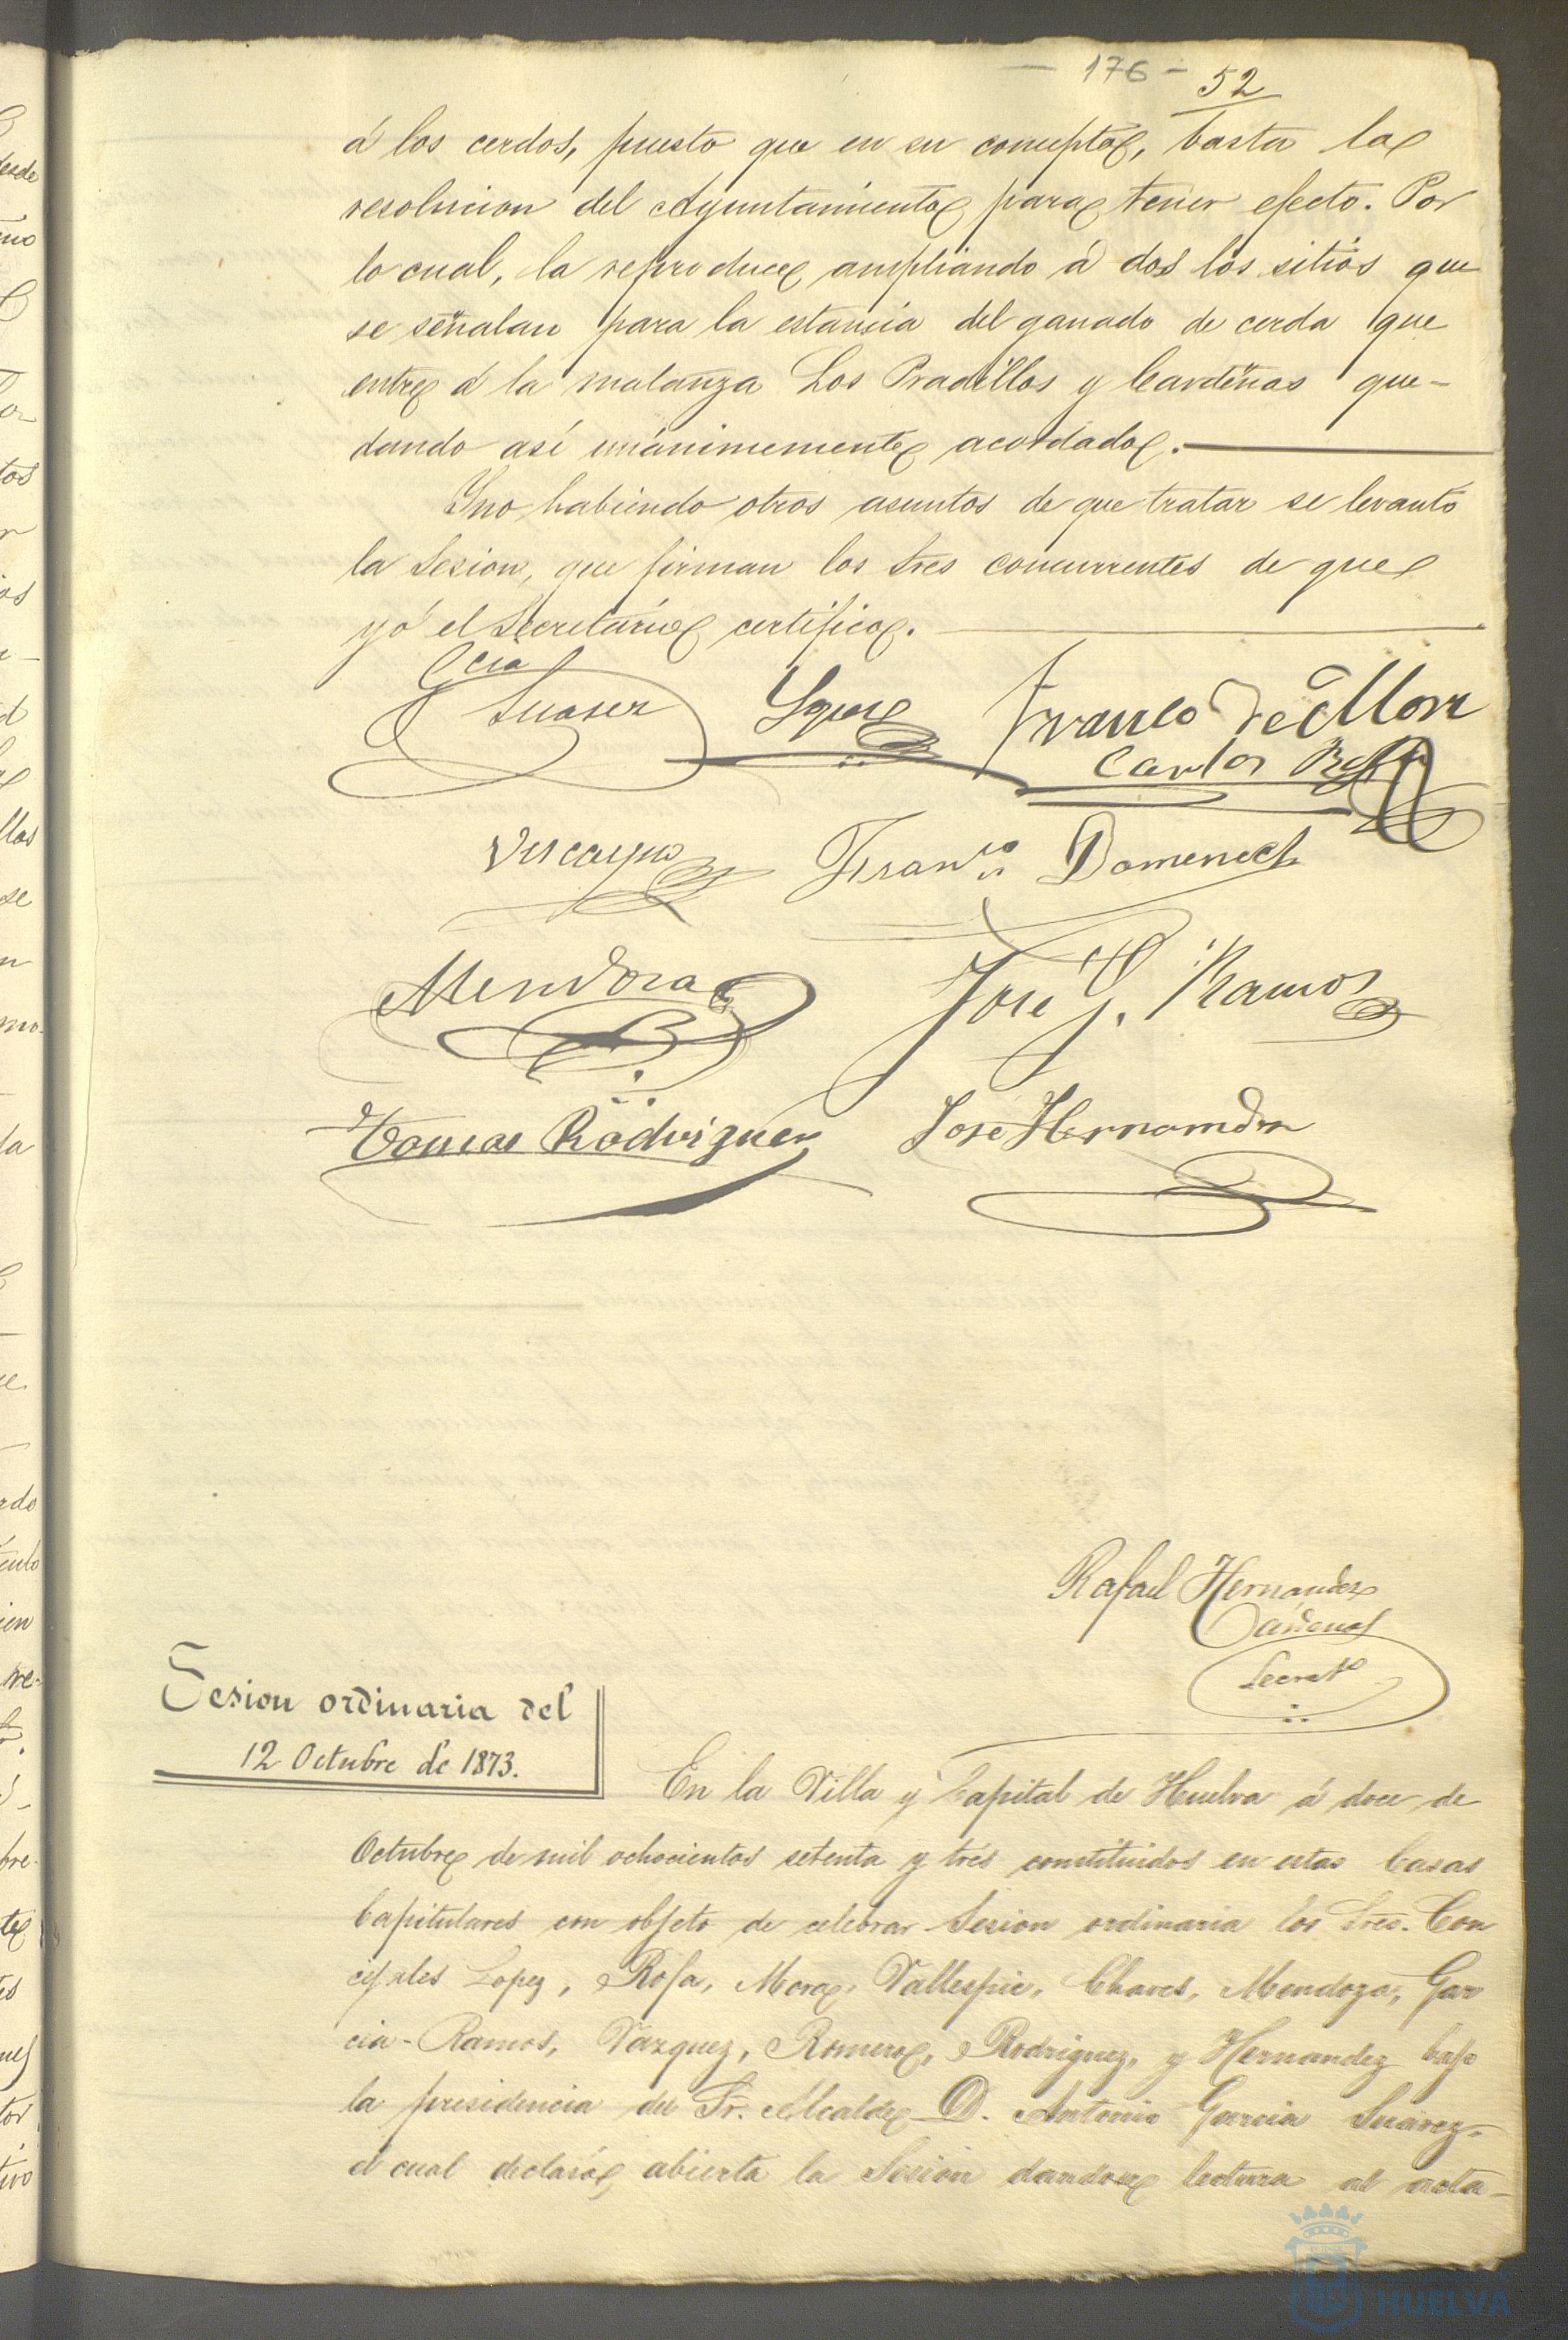 - 176 - 52
á los cerdos, puesto que en su concepto, basta la
resolucion del Ayuntamiento para tener efecto. Por
lo cual, la reproduce ampliando á dos los sitios que
se señalan para la estancia del ganado de cerda que
entre á la matanza Los Pradillos y Cardeñas que-
dando así unánimemente acordado.
Y no habiendo otros asuntos de que tratar se levantó
la Sesion, que firman los Sres concurrentes de que
yó el Secretario certifico.
Gcia
Suarez
Franco de Mora
Carlos
Vizcayno Franco Domenech
Mendoza José G. Ramos
Tomas Rodriguez José Hernandez
Rafael Hernandez
Cárdenas
Secreto
Sesion ordinaria del
12 Octubre de 1873.
En la Villa y Capital de Huelva á doce de
Octubre de mil ochocientos setenta y trés constituidos en estas Casas
Capitulares con objeto de celebrar Sesion ordinaria los Sres. Con
cejales Lopez, Rofa, Mora, Vallespin, Chaves, Mendoza, Gar
cia-Ramos, Vazquez, Romero, Rodriguez, y Hernandez bajo
la presidencia del Sr. Alcalde D. Antonio Garcia Suarez,
el cual declaró abierta la Sesion dandose lectura al acta-
HUELVA